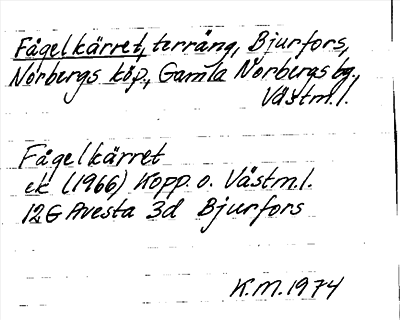 Fågelkärret, terräng, Bjurfors,
Norbergs köp., Gamla Norbergs bg.,
Västm.l.
Fågelkärret
ek (1966) Kopp. o. Västm.l.
12G Avesta 3d Bjurfors
K.M. 1974